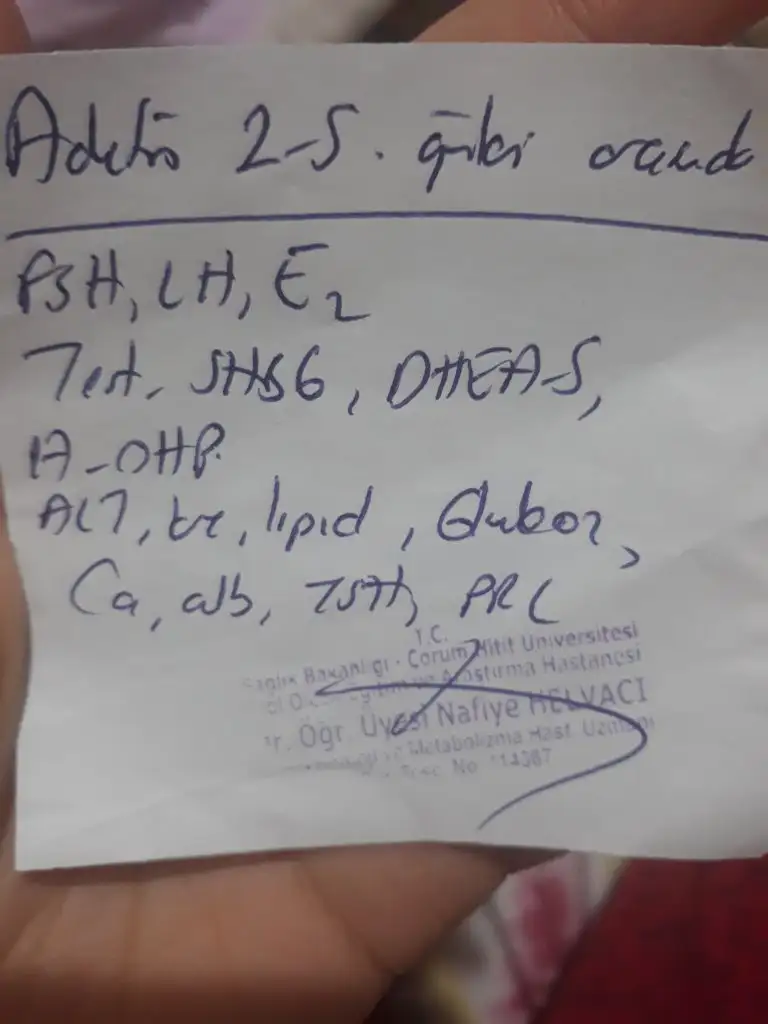 Adetin 2-5. günleri arasında
FSH, LH, E2
Test, SHBG, DHEA-S,
17-OHP.
ALT, kr, lipid, Glukoz,
Ca, alb, TSH, PRL
T.C.
Sağlık Bakanlığı - Çorum Hitit Üniversitesi
Eğitim ve Araştırma Hastanesi
Dr. Öğr. Üyesi Nafiye HELVACI
ve Metabolizma Hast. Uzmanı
No